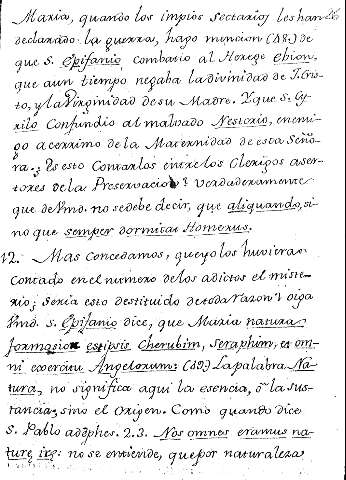 Maria, quando los impios sectarios les han
declarado la guerra, hago mencion (48.) de
que S. Epifanio combatio al Herege Ebion,
que aun tiempo negaba la divinidad de J. Cris-
to, y la Virginidad de su Madre. Y que S. Cy-
rilo Confundio al malvado Nestorio, enemi-
go acerrimo de la Maternidad de esta Seño-
ra. Es esto Contarlos entre los Clerigos aser-
tores de la Preservacion? Verdaderamente
que de Vmd. no se debe decir, que aliquando, si-
no que semper dormitat Homerus.
12. Mas concedamos, que yo los huviera
Contado en el numero de los adictos el miste-
rio; Seria esto destituido de toda razon? oiga
Vmd. S. Epifanio dice, que Maria natura
formosior est ipsis Cherubim, Seraphim, et om-
ni exercitu Angelorum: (49.) La palabra Na-
tura, no significa aqui la esencia, ô la sus-
tancia, sino el Origen. Como quando dice
S. Pablo ad Ephes. 2.3. Nos omnes eramus na-
turę irę: no se entiende, que por naturaleza